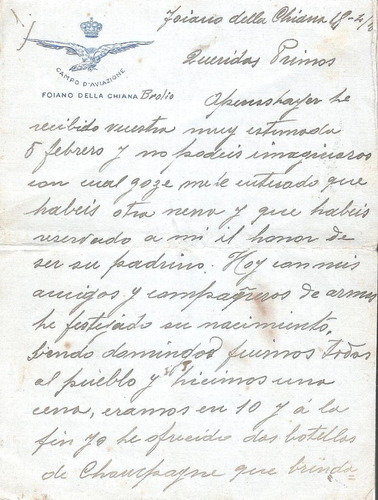 Foiano della Chiana 18-2/
CAMPO D'AVIAZIONE
FOIANO DELLA CHIANA Brolio
Queridos Primos
Apenas hayer he
recibido vuestra muy estimada
5 febrero y no podeis imaginaros
con cual goze me he enterado que
habeis otra nena y que habeis
reservado a mi il honor de
ser su padrino. Hoy con mis
amigos y compagñeros de armas
he festejado su nacimiento,
siendo domingo fuimos todos
al pueblo y hicimos una
cena, eramos en 10 y á la
fin yo he ofrecido dos botellas
de Champagne que brinda=